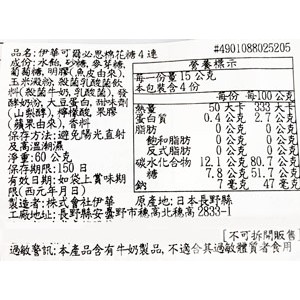 #4901088025205
品名：伊華可爾必思棉花糖4連
成份：水飴，砂糖，麥芽糖，
葡萄糖，明膠(魚皮由來)，
玉米澱粉，殺菌乳酸菌飲
料(殺菌牛奶，乳酸菌)，發
酵奶粉，大豆蛋白，甜味劑
(山梨醇)，檸檬酸，果膠
(蘋果由來)，香料
保存方法：避免陽光直射
及高溫潮濕
淨重：60公克
保存期限：150日
有效日期：如袋上賞味期
限(西元年月日)
營養標示
每一份量15公克
本包裝含4份
每份 每100公克
熱量 50大卡 333大卡
蛋白質 0.4公克 2.7公克
脂肪 0公克 0公克
飽和脂肪 0公克 0公克
反式脂肪 0公克 0公克
碳水化合物 12.1公克 80.7公克
糖 7.7公克 51.7公克
鈉 7毫克 47毫克
製造者：株式会社伊華 原產地：日本長野縣
工廠地址：長野縣安曇野市穗高北穗高2833-1
[不可拆開販售]
過敏警訊：本產品含有牛奶製品，不適合其過敏體質者食用